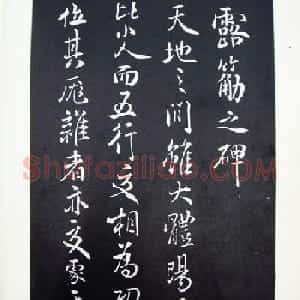 露筋之碑
天地之間雖大體陽
比小人而五行交相為
位其厖雜者亦交
Shufaziliao.com